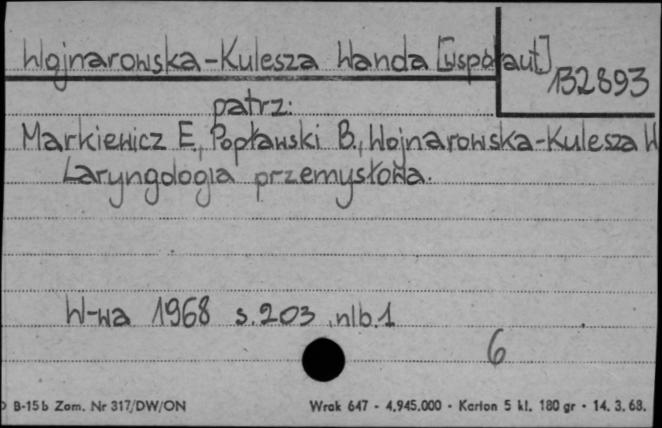 Wojnarowska-Kulesza Wanda [współaut]
132893
patrz:
Markiewicz E., Popławski B., Wojnarowska-Kulesza W
Laryngologia przemysłowa.
W-wa 1968 s. 203, nlb. 1
6
B-15b Zam. Nr 317/DW/ON
Wrak 647 - 4.945.000 - Karton 5 kl. 180 gr - 14. 3. 68.